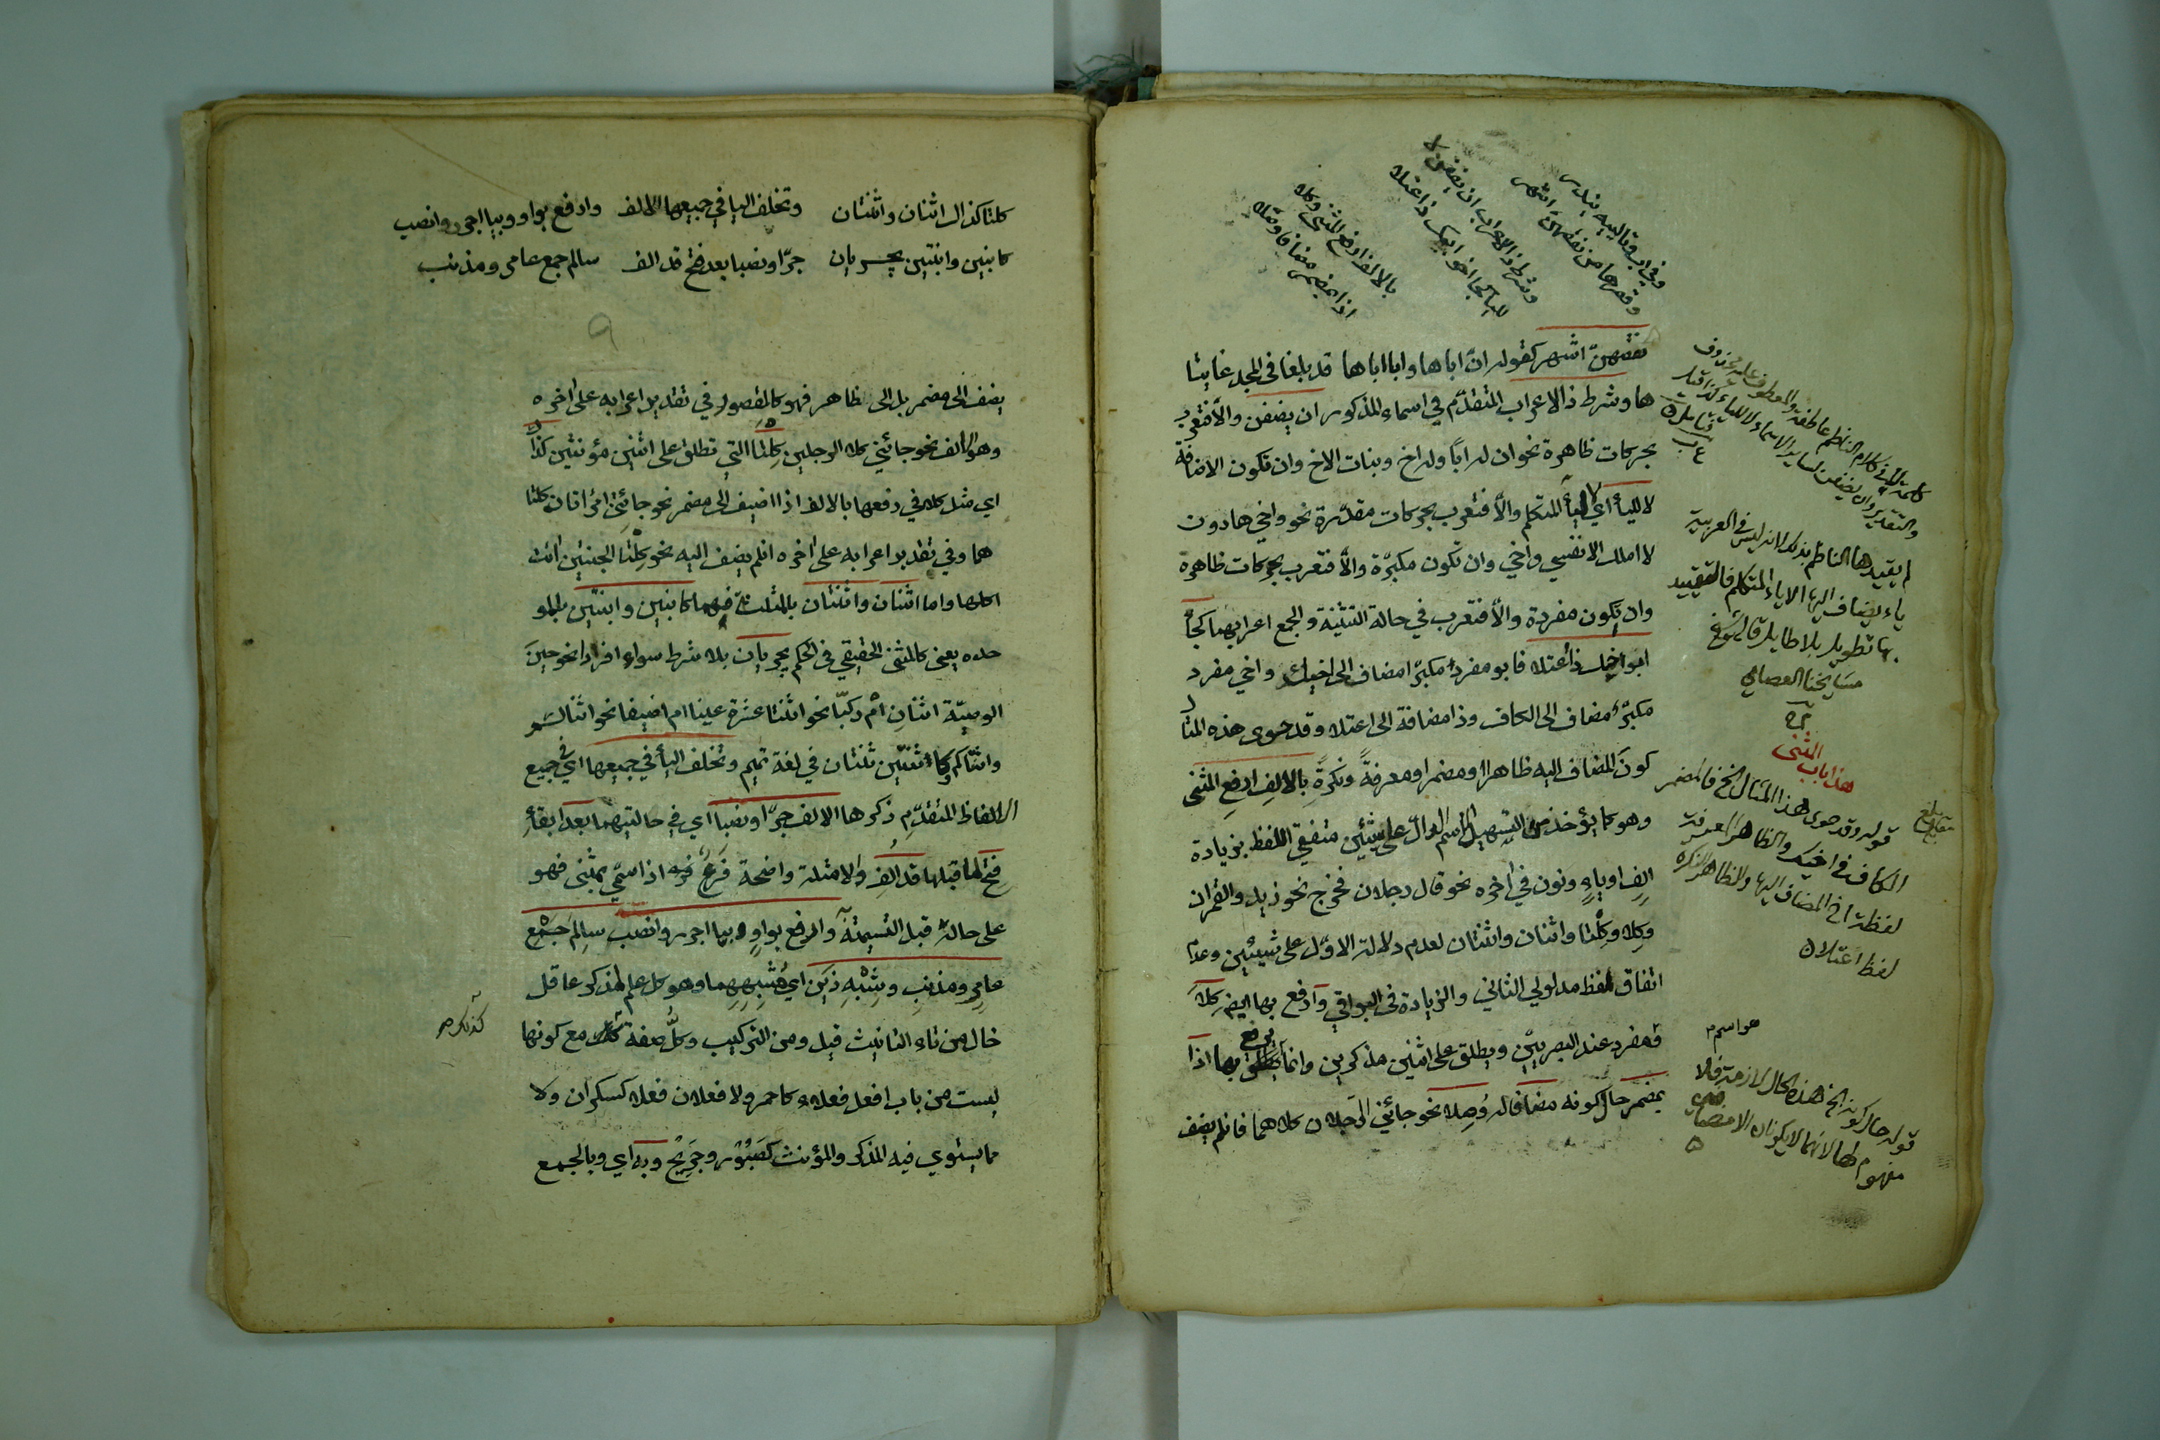 وفي اب وتالييه يندر
وقصرها من نقصهن اشهر
وشرط ذا الاعراب ان يضفن لا
لليا كجا اخو ابيك ذا اعتلا
بالالف ارفع المثنى وكلا
اذا بمضمر مضافا وصلا
نقصهن اشهر كقوله ان اباها وابا اباها قد بلغا في المجد غايتا
ها وشرط ذا الاعراب المتقدم في اسماء المذكورا ان يضفن والا فتعرب
بحركات ظاهرة نحو ان له ابا وله اخ وبنات الاخ وان تكون الاضافة
لا لليا اي لياء المتكلم والا فتعرب بحركات مقدرة نحو واخي هارون
لا املك الا نفسي واخي وان تكون مكبرة والا فتعرب بحركات ظاهرة
وان تكون مفردة والا فتعرب في حالة التثنية والجمع اعرابهما كجا
اخو ابيك ذا اعتلا فابو مفرد مكبر مضاف الى اخيك واخي مفرد
مكبر مضاف الى الكاف وذا مضافة الى اعتلا وقد حوى هذه المثا
كون المضاف اليه ظاهرا ومضمرا ومعرفة ونكرة بالالف ارفع المثنى
وهو كما يؤخذ من التسهيل الاسم الدال على شيئين متفقي اللفظ بزيادة
الف او ياء ونون في اخره نحو قال رجلان فخرج نحو زيد والقمران
وكلا وكلتا واثنان واثنتان لعدم دلالة الاول على شيئين وعدم
اتفاق لفظ مدلولي الثاني والزيادة في البواقي وارفع بها ايضا كلا
هو اسم
مفرد عند البصريين ويطلق على اثنين مذكرين وانما يرفع بها اذا
بمضمر حال كونه مضافا له وصلا نحو جائني الرجلان كلاهما فان لم يضف
لم يقيدها الناظم بذلك لانه ليس في العربية
ياء يضاف اليها الا ياء المتكلم فالتقييد
بها تطويل بلا طايل قال شيخ
مشايخنا العصامي
هذا باب المثنى
قوله وقد حوى هذا المثال الخ فالمضمر
الكاف في اخيك والظاهر المعرفة
لفظة اخ المضاف اليها والظاهر النكرة
لفظ اعتلا
قوله حال كونه الخ هذه الحال لازمة فلا
مفهوم لها لانهما لا يكونان الا مضافين
كلتا كذاك اثنان واثنتان
كابنين وابنتين يجريان
وتخلف اليا في جميعها الالف
جرا ونصبا بعد فتح قد الف
وارفع بواو وبيا اجرر وانصب
سالم جمع عامر ومذنب
يضف الى مضمر بل الى ظاهر فهو كالمقصور في تقدير اعرابه على اخره
وهو الالف نحو جائني كلا الرجلين كلتا التي تطلق على اثنين مؤنثين كذا
اي مثل كلا في رفعها بالالف اذا اضيف الى مضمر نحو جائتني امرأتان كلتا
هما وفي تقدير اعرابه على اخره ان لم يضف اليه نحو كلتا الجنتين اتت
اكلها واما اثنان واثنتان بالمثلثة فهما كابنين وابنتين بالمو
حده يعني كالمثنى الحقيقي في الحكم يجريان بلا شرط سواء افردا نحو حين
الوصية اثنان ام ركبا نحو اثنتا عشرة عينا ام اضيفا نحو اثنا
واثناكم وكاثنتين ثنتان في لغة تميم وتخلف اليا في جميعها اي في جميع
الالفاظ المتقدم ذكرها الالف جرا ونصبا اي في حالتيهما بعد ابقاء
فتح لما قبلها قد الف والامثلة واضحة فرع اذا سمي بمثنى فهو
على حاله قبل التسمية وارفع بواو وبيا اجرر وانصب سالم جمع
عامر ومذنب وشبه ذين اي مشبههما وهو كل علم لمذكر عاقل
خال من تاء التانيث قيل ومن التركيب وكل صفة كذلك مع كونها
ليست من باب افعل فعلاء كاحمر ولا فعلان فعلى كسكران ولا
مما يستوي فيه المذكر والمؤنث كصبور وجريح وبه اي وبالجمع